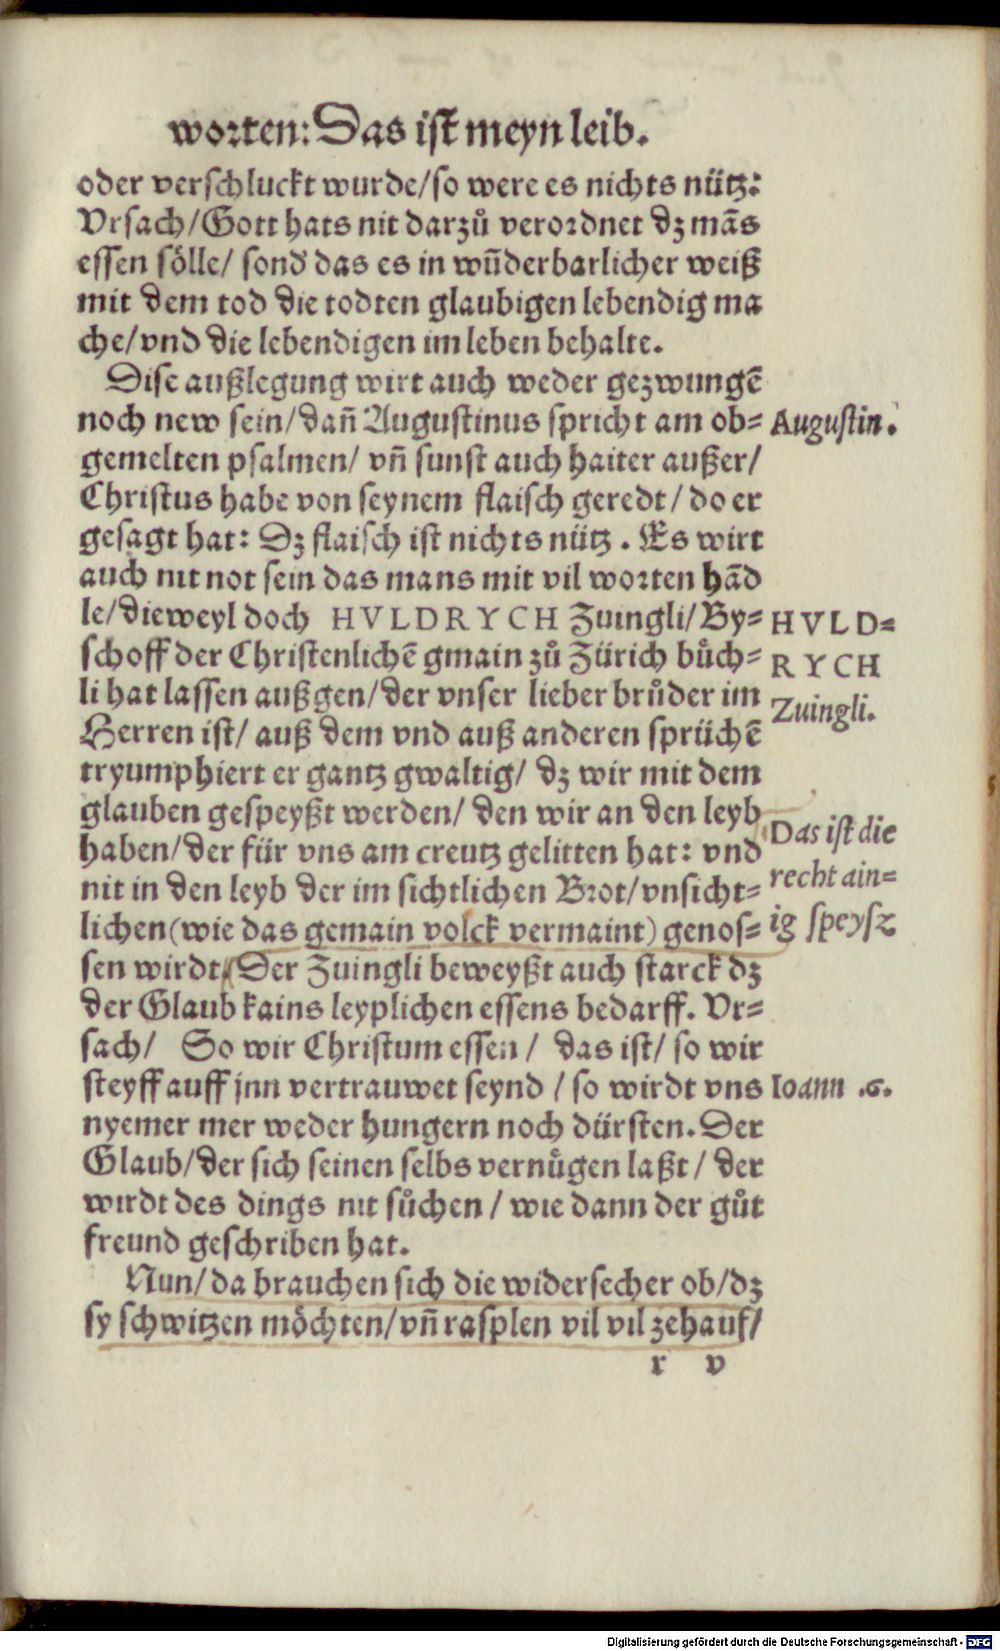 worten: Das ist meyn leib.
oder verschluckt wurde/so were es nichts nütz:
Vrsach/Gott hats nit darzů verordnet dz mãs
essen sölle/ sond' das es in wũderbarlicher weiß
mit dem tod die todten glaubigen lebendig ma
che/vnd die lebendigen im leben behalte.
Dise außlegung wirt auch weder gezwungẽ
noch new sein/dañ Augustinus spricht am ob=
Augustin.
gemelten psalmen/ vñ sunst auch haiter außer/
Christus habe von seynem flaisch geredt/ do er
gesagt hat: Dz flaisch ist nichts nütz. Es wirt
auch nit not sein das mans mit vil worten hãd
le/dieweyl doch HVLDRYCH Zuingli/By=
HVLD=
schoff der Christenlichẽ gmain zů Zürich bůch=
RYCH
li hat lassen außgen/der vnser lieber brůder im
Zuingli.
Herren ist/ auß dem vnd auß anderen sprüchẽ
tryumphiert er gantz gwaltig/ dz wir mit dem
glauben gespeyßt werden/ den wir an den leyb
Das ist die
haben/der für vns am creutz gelitten hat: vnd
recht ain=
nit in den leyb der im sichtlichen Brot/vnsicht=
ig speysz
lichen(wie das gemain volck vermaint) genos=
sen wirdt. Der Zuingli beweyßt auch starck dz
der Glaub kains leyplichen essens bedarff. Vr=
sach/ So wir Christum essen/ das ist/ so wir
steyff auff jnn vertrauwet seynd / so wirdt vns
Ioann .6.
nyemer mer weder hungern noch dürsten. Der
Glaub/der sich seinen selbs vernůgen laßt/ der
wirdt des dings nit sůchen / wie dann der gůt
freund geschriben hat.
Nun/da brauchen sich die widersecher ob/dz
sy schwitzen möchten/vñ rasplen vil vil zehauf/
r v
Digitalisierung gefördert durch die Deutsche Forschungsgemeinschaft - DFG